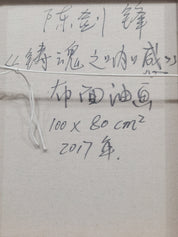 陈剑锋
《铸魂之"内"感》
布面油画
100 x 80 cm²
2017年.